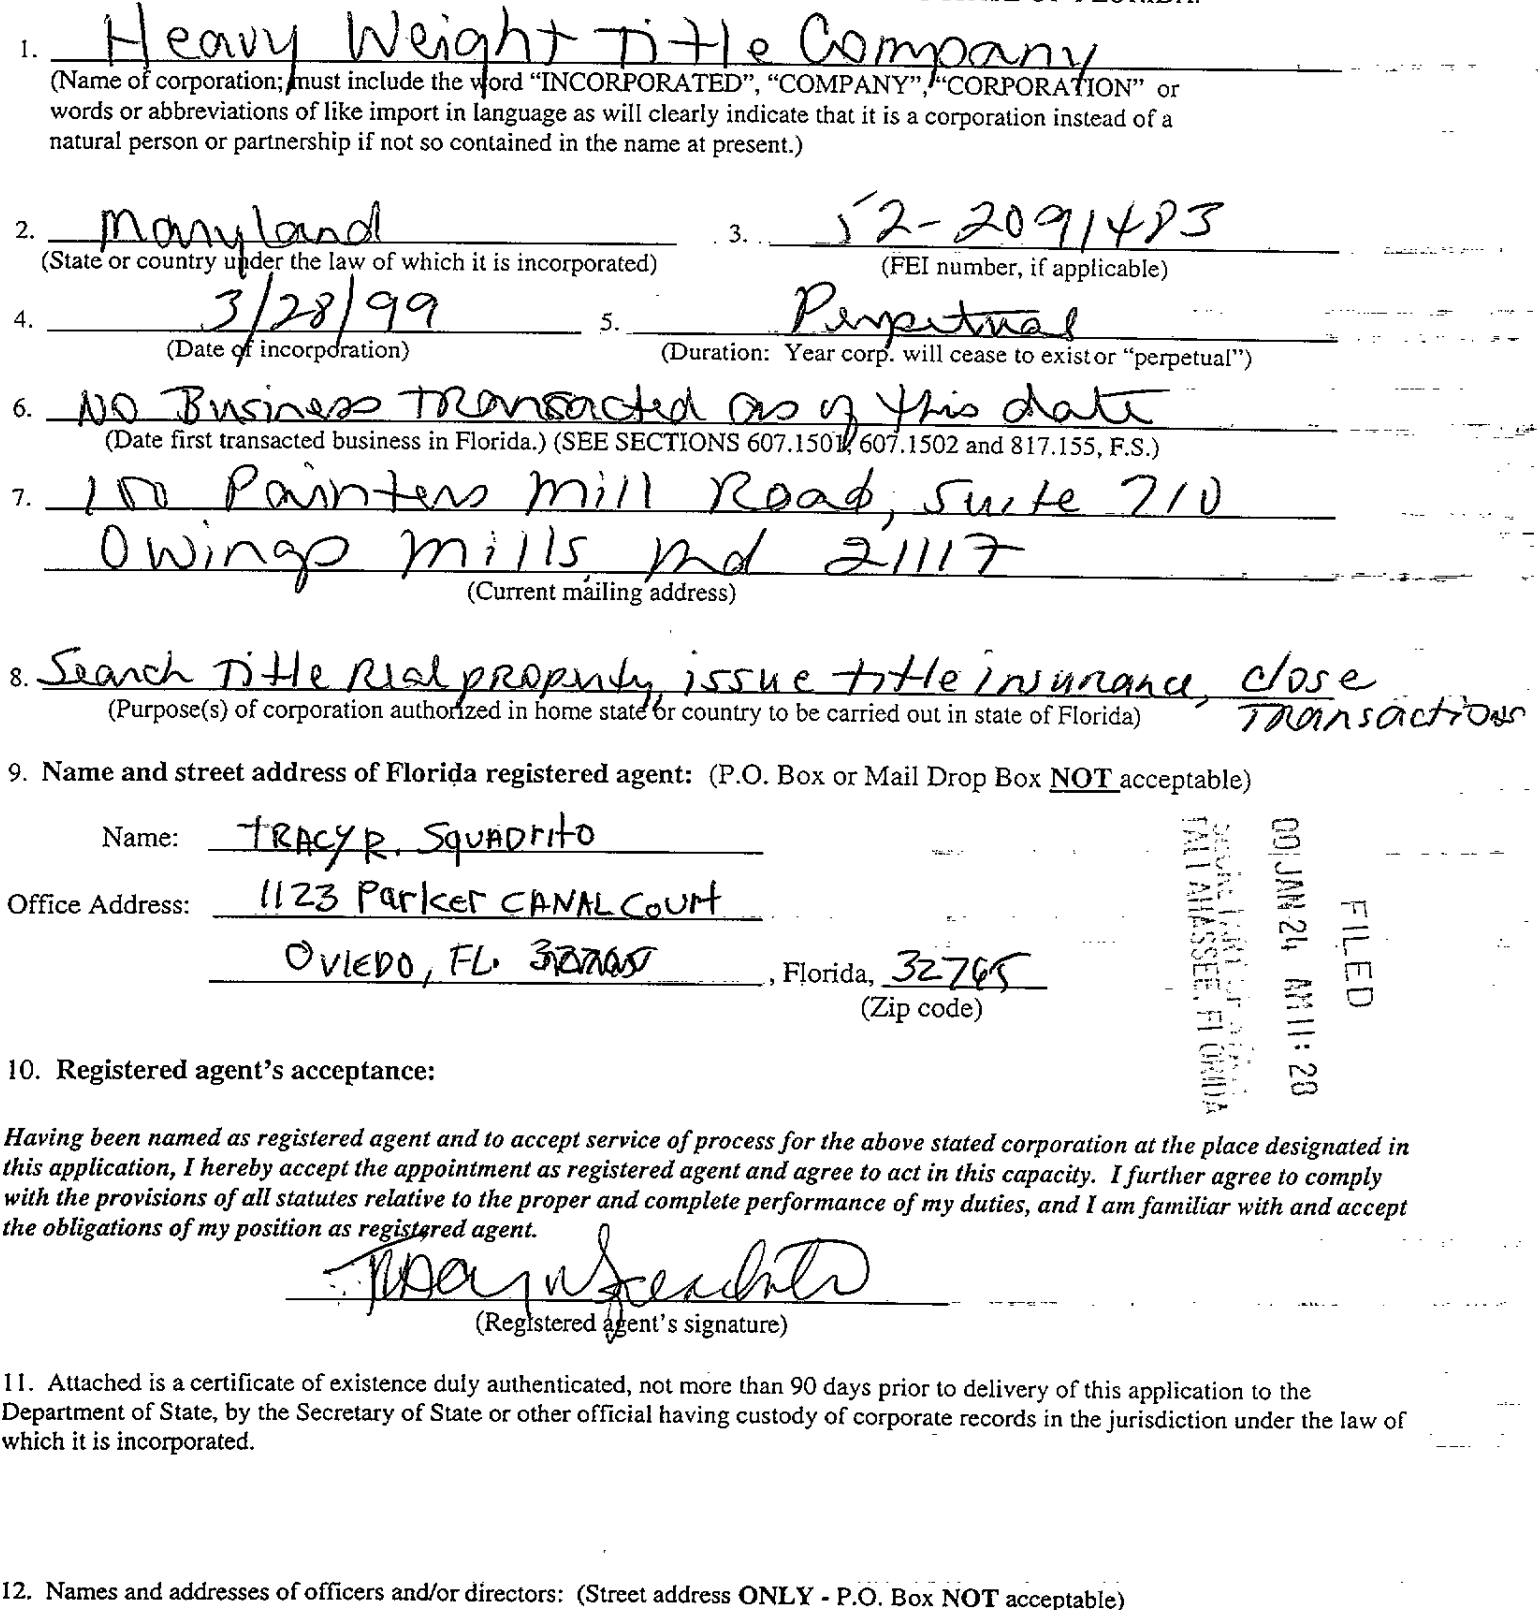 1. Heavy Weight Title Company
(Name of corporation; must include the word “INCORPORATED”, “COMPANY”, “CORPORATION” or
words or abbreviations of like import in language as will clearly indicate that it is a corporation instead of a
natural person or partnership if not so contained in the name at present.)
2. Maryland 3. 52-2091483
(State or country under the law of which it is incorporated) (FEI number, if applicable)
4. 3/28/99 5. Perpetual
(Date of incorporation) (Duration: Year corp. will cease to exist or “perpetual”)
6. NO Business transacted as of this date
(Date first transacted business in Florida.) (SEE SECTIONS 607.1501, 607.1502 and 817.155, F.S.)
7. 100 Painters Mill Road, Suite 710
Owings Mills, Md 21117
(Current mailing address)
8. Search Title Real property, issue title insurance, close
(Purpose(s) of corporation authorized in home state or country to be carried out in state of Florida) Transactions
9. Name and street address of Florida registered agent: (P.O. Box or Mail Drop Box NOT acceptable)
Name: TRACY R. SQUADritO
Office Address: 1123 Parker CANAL Court
OVIEDO, FL. , Florida, 32765
(Zip code)
FILED
00 JAN 24 AM 11: 28
TALLAHASSEE, FLORIDA
10. Registered agent’s acceptance:
Having been named as registered agent and to accept service of process for the above stated corporation at the place designated in
this application, I hereby accept the appointment as registered agent and agree to act in this capacity. I further agree to comply
with the provisions of all statutes relative to the proper and complete performance of my duties, and I am familiar with and accept
the obligations of my position as registered agent.
(Registered agent’s signature)
11. Attached is a certificate of existence duly authenticated, not more than 90 days prior to delivery of this application to the
Department of State, by the Secretary of State or other official having custody of corporate records in the jurisdiction under the law of
which it is incorporated.
12. Names and addresses of officers and/or directors: (Street address ONLY - P.O. Box NOT acceptable)